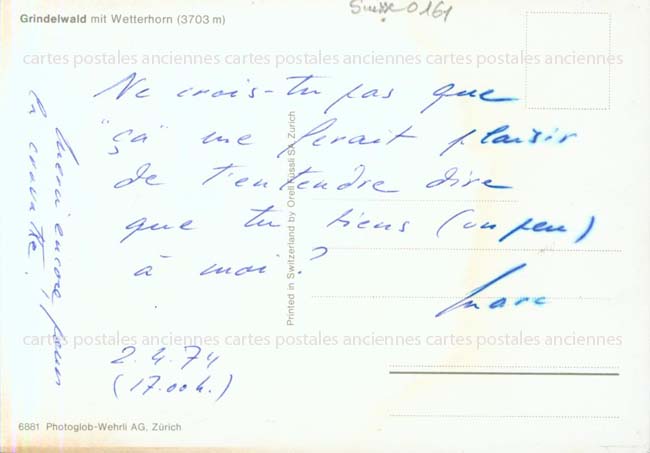 Suisse 0161
Grindelwald mit Wetterhorn (3703 m)
cartes postales anciennes cartes postales anciennes cartes postales anciennes
Ne crois-tu pas que
"ça" me ferait plaisir
de t'entendre dire
que tu tiens (un peu)
à moi?
Marc
2.4.74
(17.00h.)
Merci encore pour
la cravatte!
Printed in Switzerland by Orell Füssli SA, Zürich
cartes postales anciennes cartes postales anciennes cartes postales anciennes
6881 Photoglob-Wehrli AG, Zürich